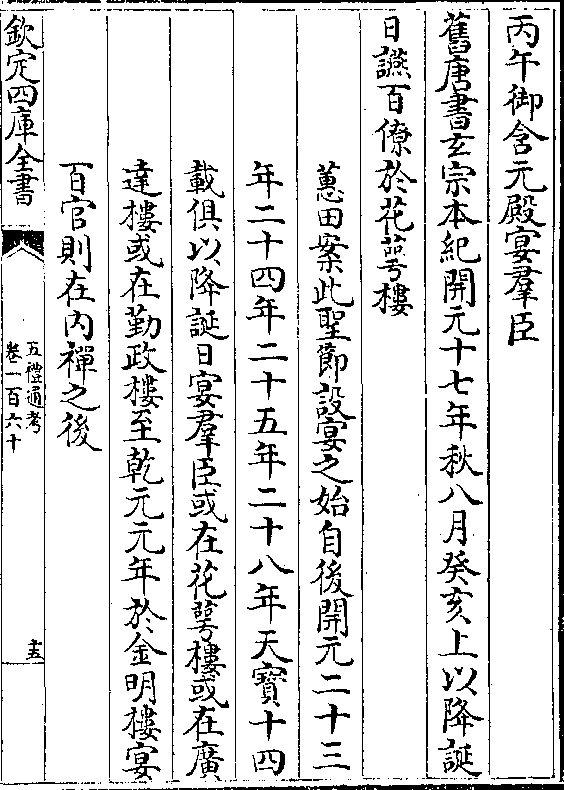 丙午御含元殿宴羣臣
舊唐書玄宗本紀開元十七年秋八月癸亥上以降誕
日讌百僚於花萼樓
蕙田案此聖節設宴之始自後開元二十三
年二十四年二十五年二十八年天寶十四
載俱以降誕日宴羣臣或在花萼樓或在廣
達樓或在勤政樓至乾元元年於金明樓宴
百官則在内禪之後
欽定四庫全書
五禮通考
卷一百六十
十五